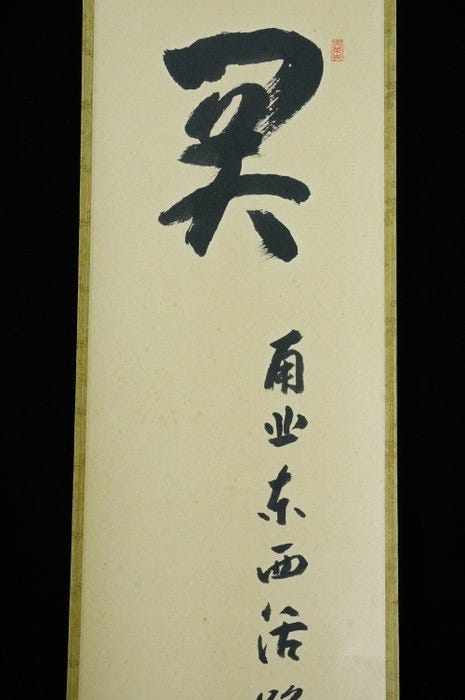 関
南北東西活路